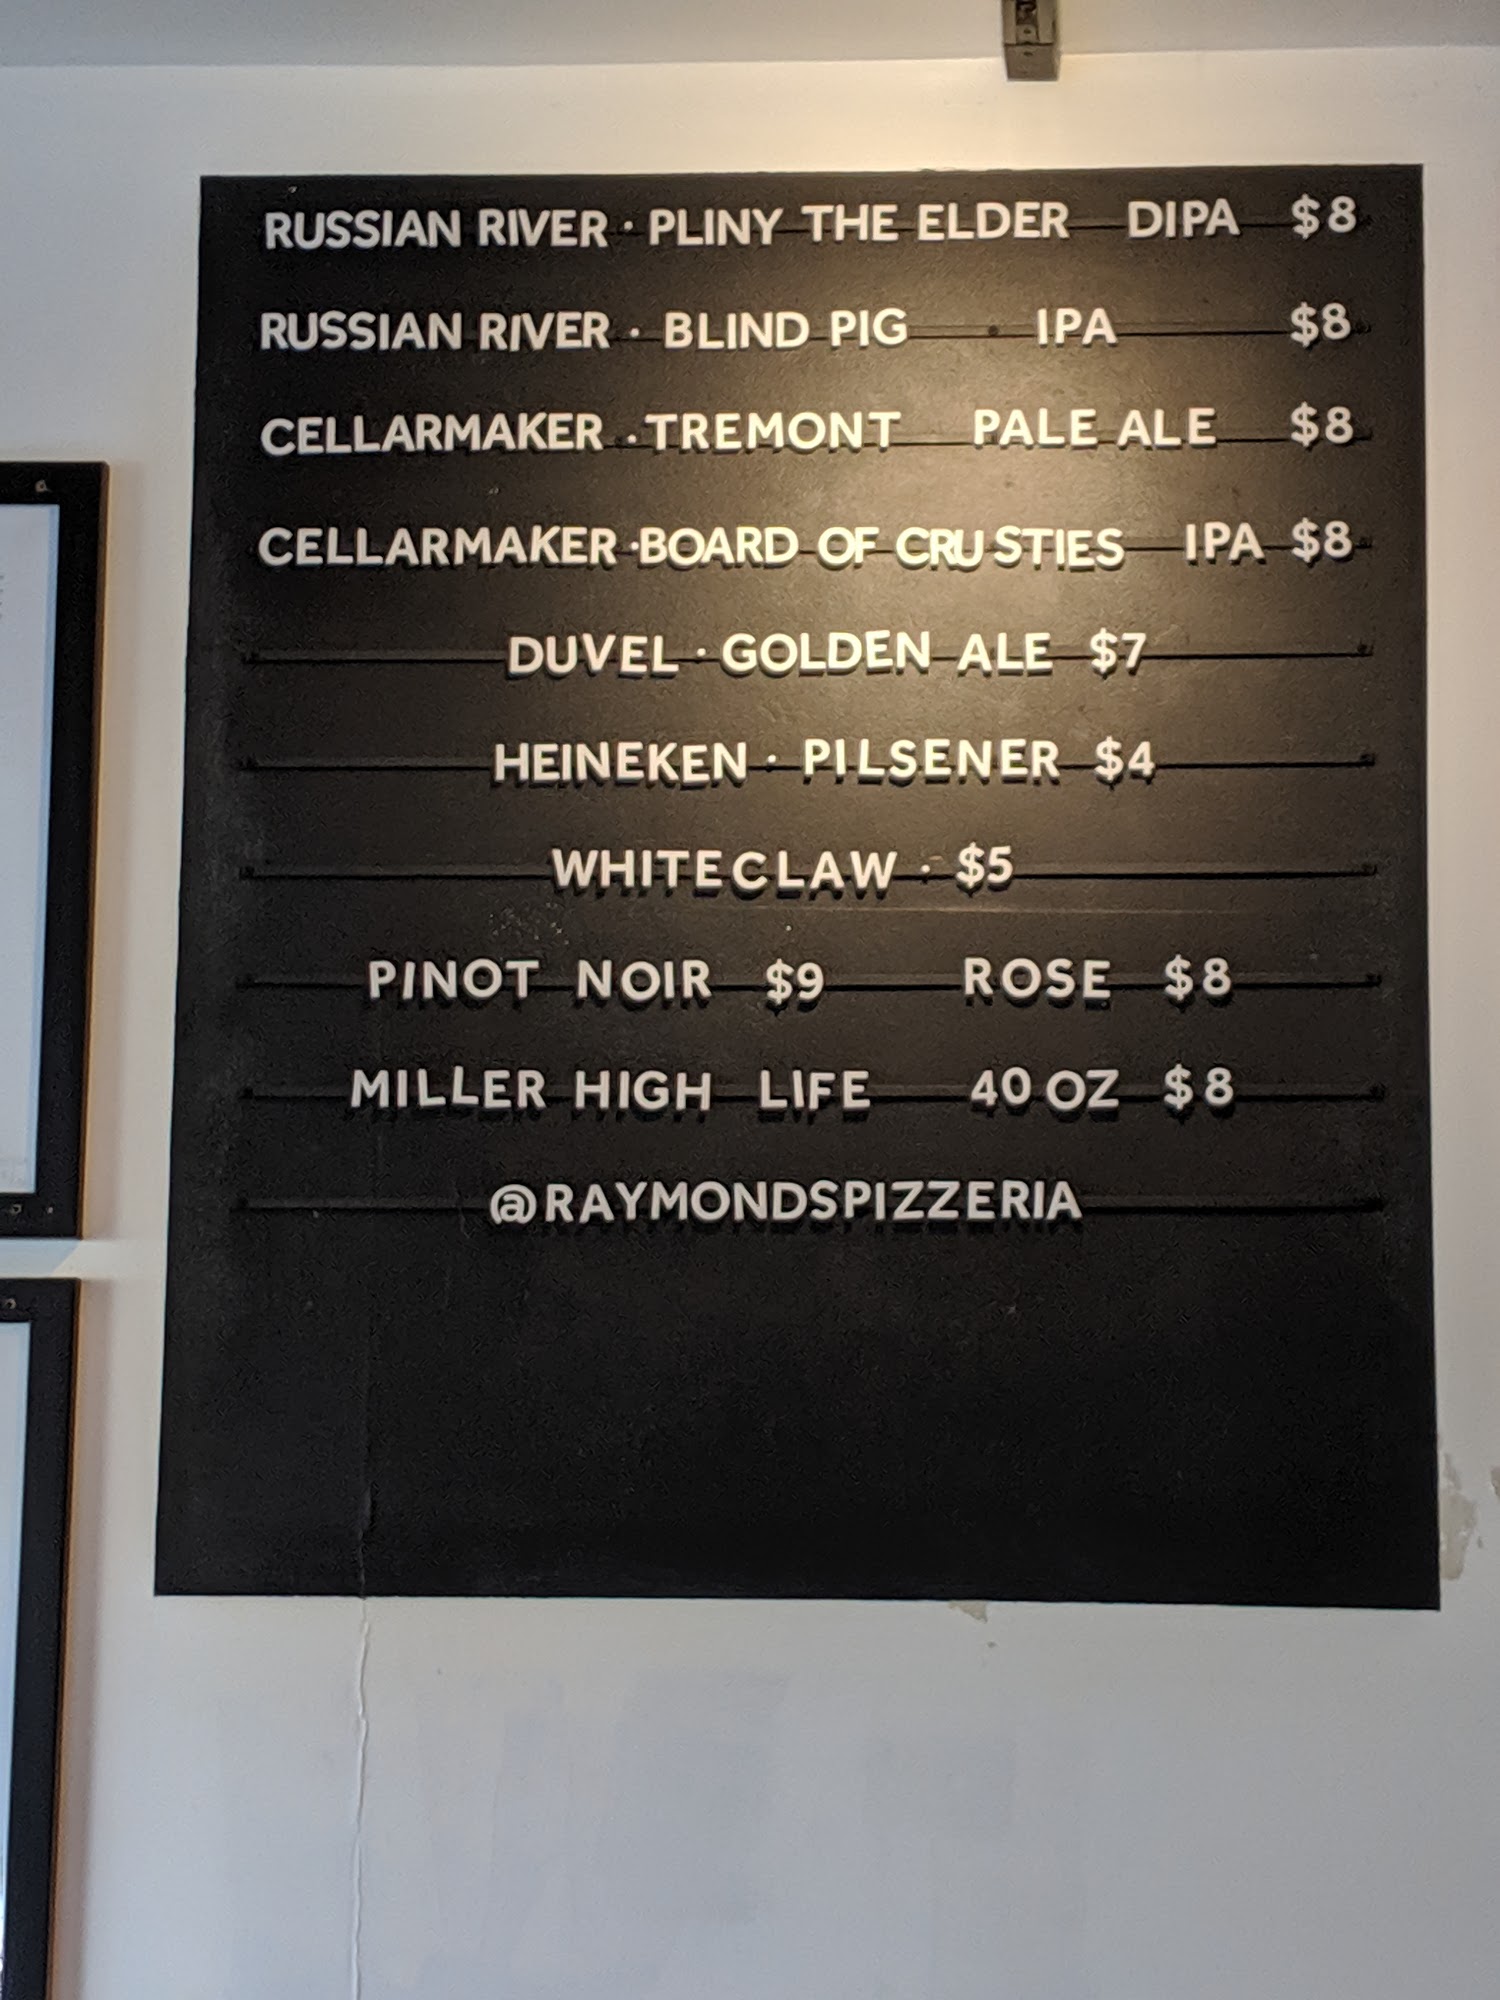 RUSSIAN RIVER · PLINY THE ELDER DIPA $8
RUSSIAN RIVER · BLIND PIG IPA $8
CELLARMAKER · TREMONT PALE ALE $8
CELLARMAKER · BOARD OF CRUSTIES IPA $8
DUVEL · GOLDEN ALE $7
HEINEKEN · PILSENER $4
WHITECLAW · $5
PINOT NOIR $9 ROSE $8
MILLER HIGH LIFE 40 OZ $8
@RAYMONDSPIZZERIA